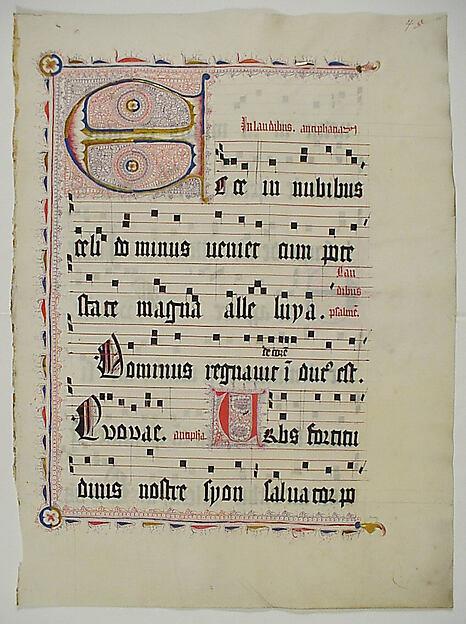 In laudibus. antiphana
Ecce in nubibus
celi do minus ueniet cum pote
Lau
dibus
sta te magna alle luya. psalme.
de core
Dominus regnauit ī duc est.
Euouae. antipha. Urbs fortitu
dinis nostre syon saluator po